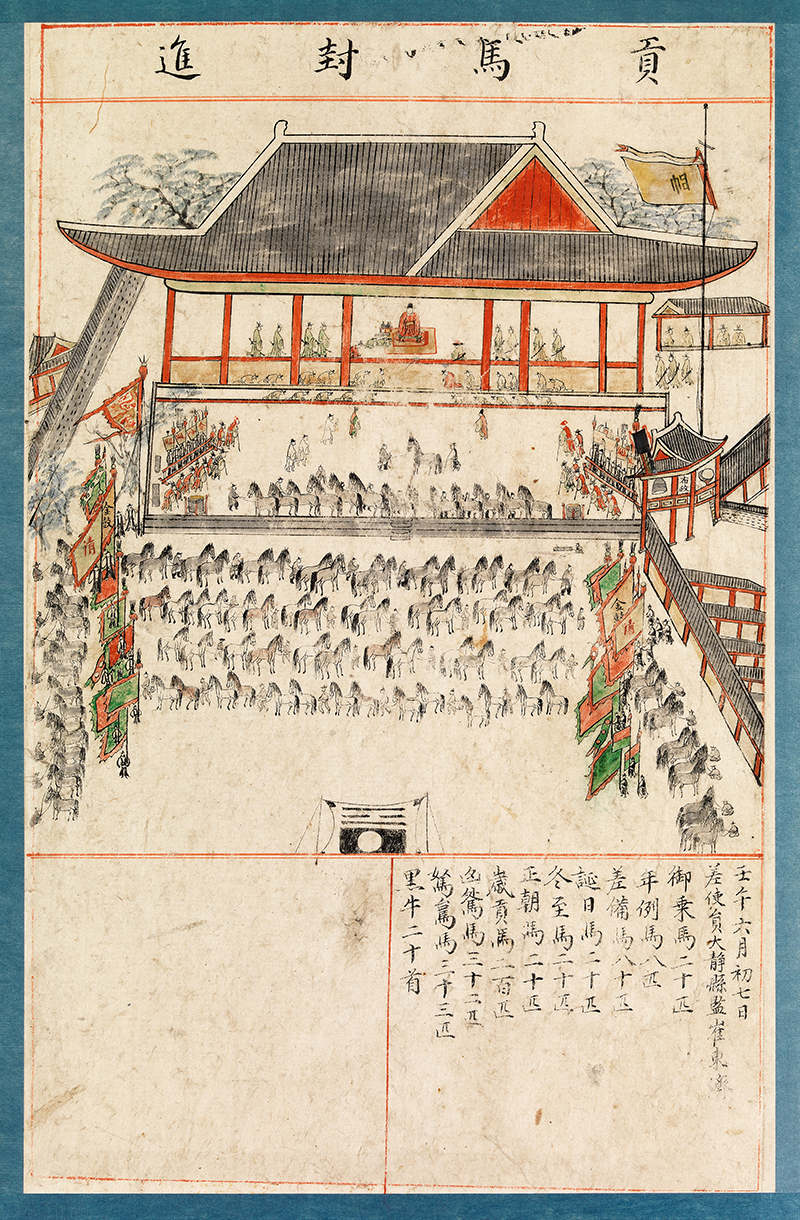 貢馬封進
壬午六月初七日
差使員大静縣監崔東濟
御乗馬二十匹
年例馬八匹
差備馬八十匹
誕日馬二十匹
冬至馬二十匹
正朝馬二十匹
歳貢馬二百匹
凶咎馬三十二匹
駑駄馬三十三匹
黒牛二十首
帽
金鼓
清
金鼓
清